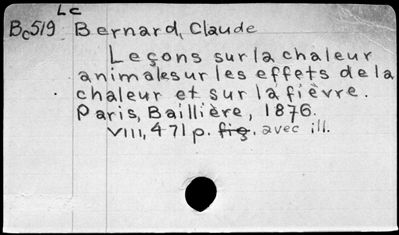 Lc
Bc519 Bernard, Claude
Leçons sur la chaleur
animale sur les effets de la
chaleur et sur la fièvre.
Paris, Baillière, 1876.
VIII, 471 p. fig. avec ill.